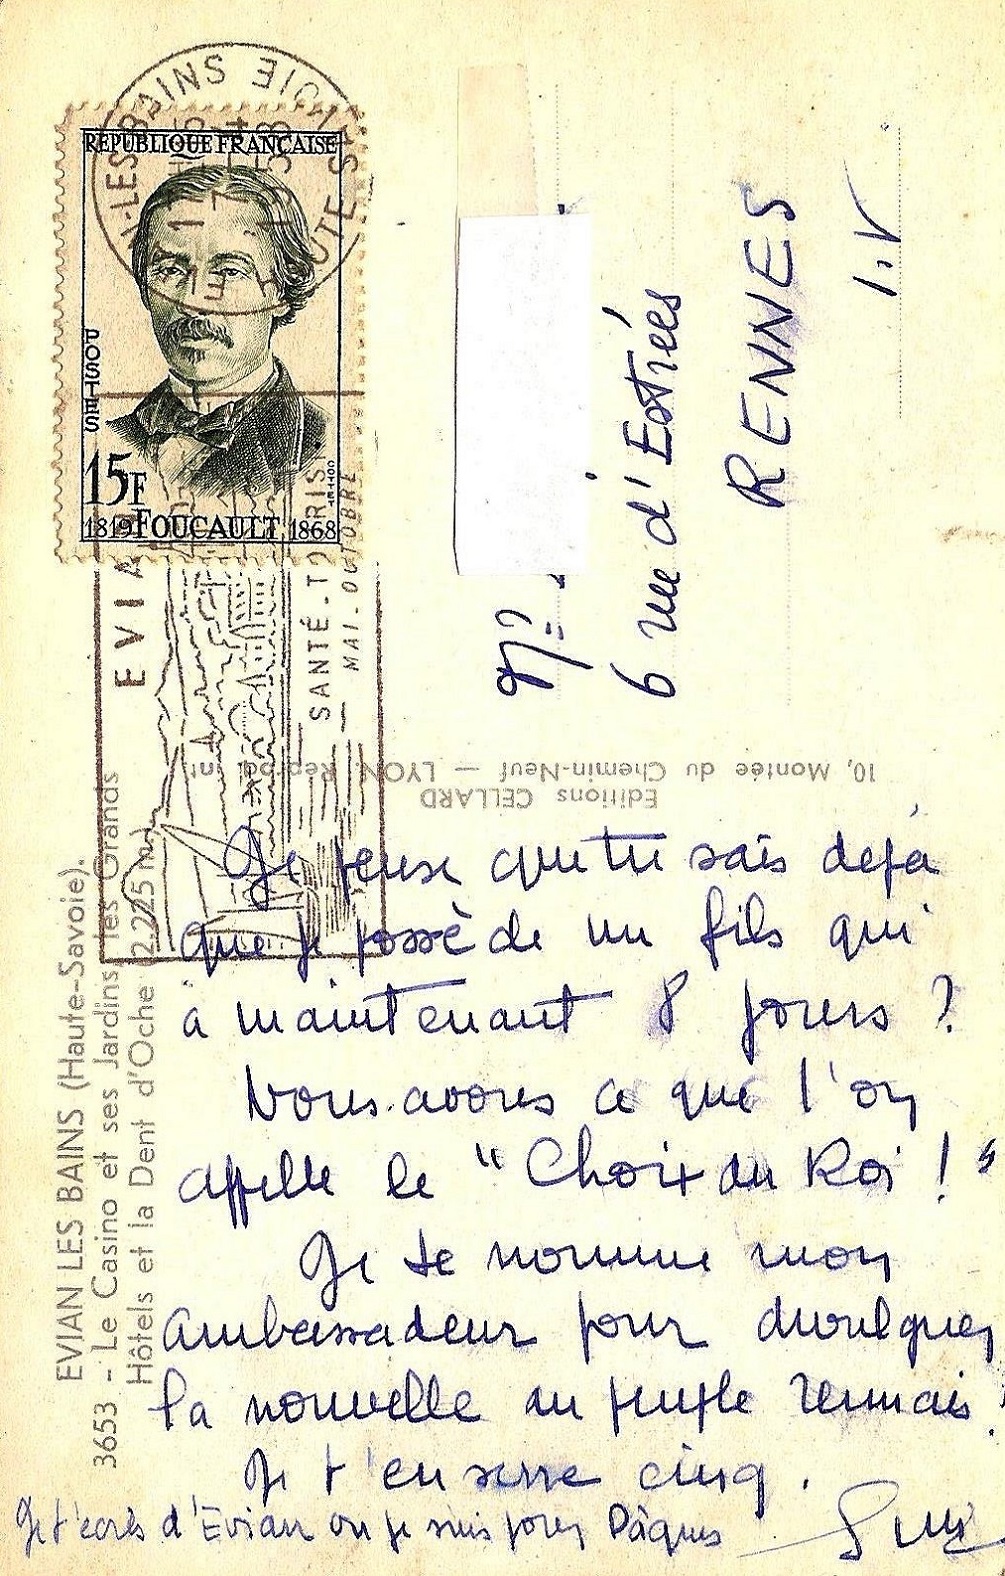 RÉPUBLIQUE FRANÇAISE
POSTES
15F
1819 FOUCAULT 1868
-LES-BAINS
HAUTE SAVOIE
EVIA
SANTÉ
MAI. OCTOBRE
6 rue d'Estrées
RENNES
I.V
Editions CELLARD
10, Montée du Chemin-Neuf — LYON
EVIAN LES BAINS (Haute-Savoie).
3653 - Le Casino et ses Jardins, les Grands
Hôtels et la Dent d'Oche (2.225 m.)
Je pense que tu sais dejà
que je possède un fils qui
a maintenant 8 jours ?
Nous avons ce que l'on
appelle le "Choix du Roi !"
Je te nomme mon
Ambassadeur pour divulguer
la nouvelle au peuple rennais.
Je t'en serre cinq.
Je t'écris d'Evian où je suis pour Pâques